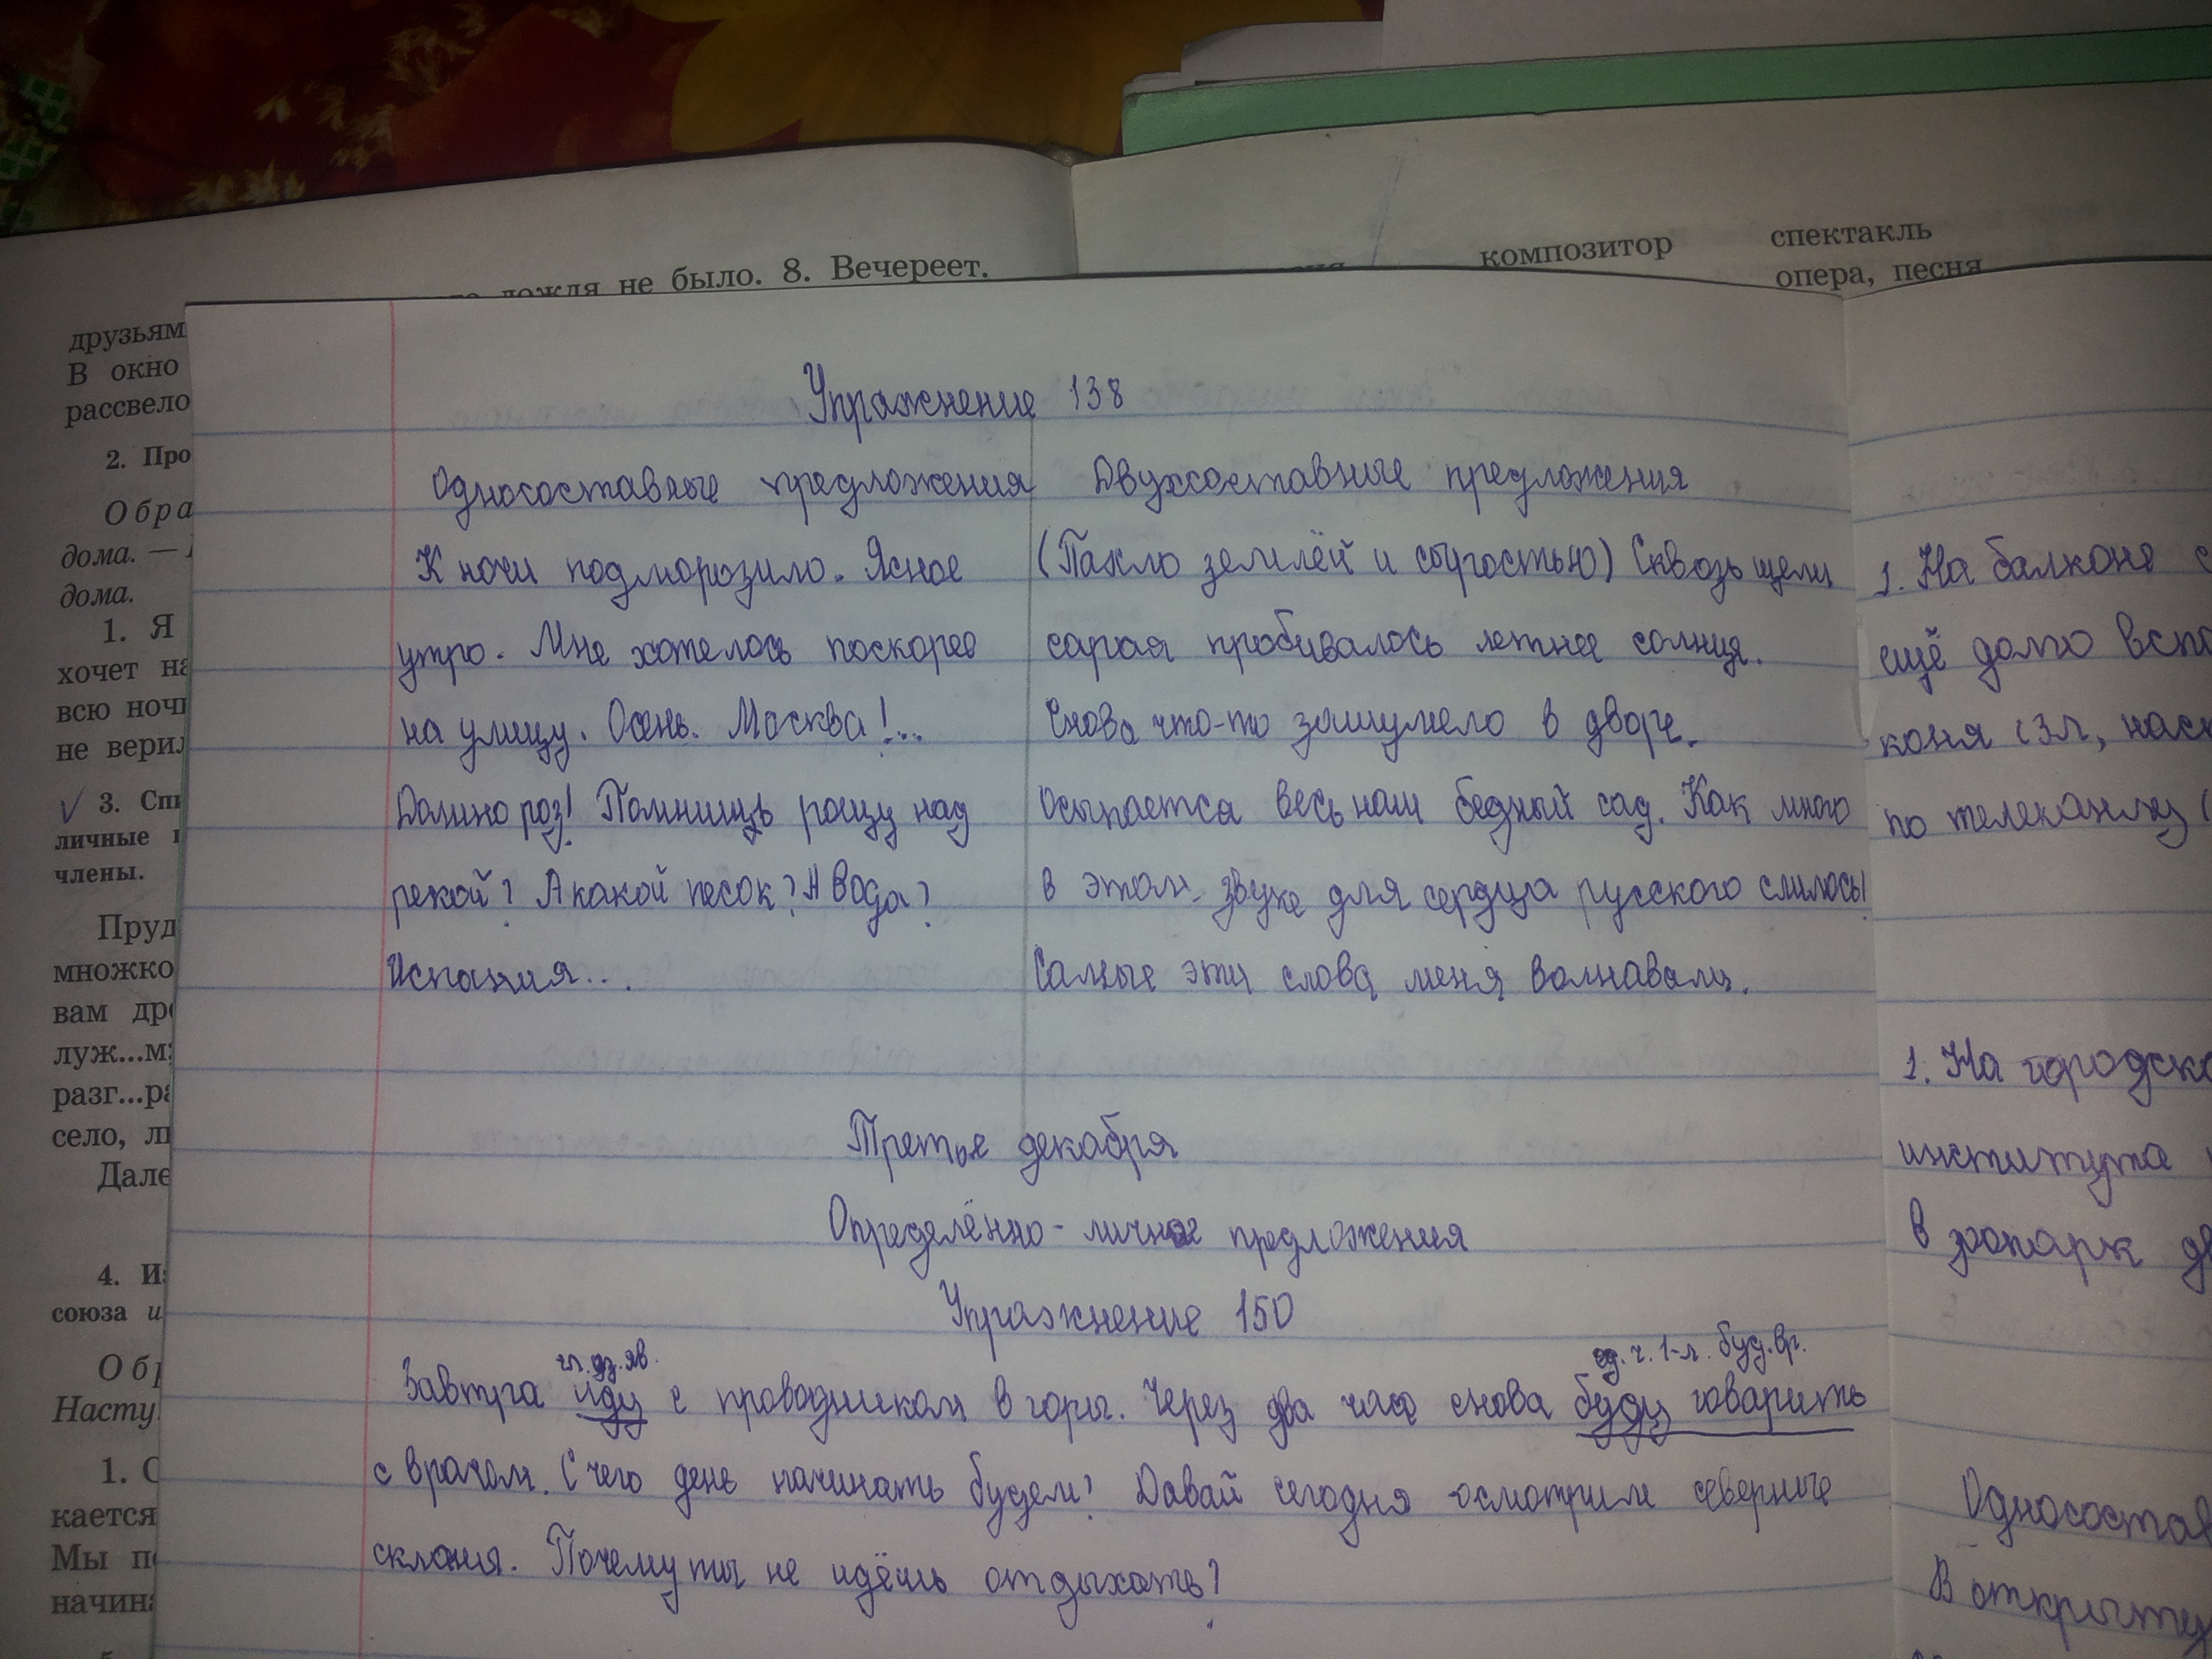 дождя не было. 8. Вечереет.
композитор спектакль
опера, песня
друзьям
В окно
рассвело
2. Про
Обра
дома. —
дома.
1. Я
хочет на
всю ночь
не верил
3. Спи
личные
члены.
Пруд
множко
вам
луж...м
разг...ра
село,
Дале
4. И
союза и
Обр
Насту
1. С
кается
Мы по
начина
Упражнение 138
Односоставные предложения Двухсоставные предложения
К ночи подморозило. Ясное (Пахло землёй и сыростью) Сквозь щели
утро. Мне хотелось поскорее сарая пробивалось летнее солнце.
на улицу. Осень. Москва!... Снова что-то зашумело в дворе.
Долина роз! Помнишь рощу над Осыпается весь наш бедный сад. Как много
рекой? А какой песок? А вода? в этом звуке для сердца русского слилось!
Испания... Самые эти слова меня волнавали.
Третье декабря
Определённо-личные предложения
Упражнение 150
ед. ч. 1-л. буд. вр.
Завтра иду с проводником в горы. Через два часа снова буду говарить
с врачом. С чего день начинать будем? Давай сегодня осмотрим северные
склоня. Почему ты не идёшь отдыхать?
1. На балконе с
ещё долго всп
коня (3л, нас
по телеканлу (
1. На городско
института
в зоопарк дв
Односостав
В открытую